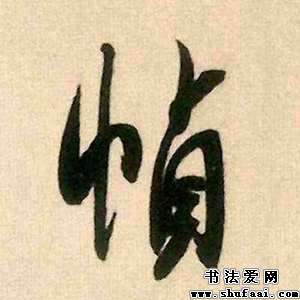 帧
书法爱网
www.shufaai.com